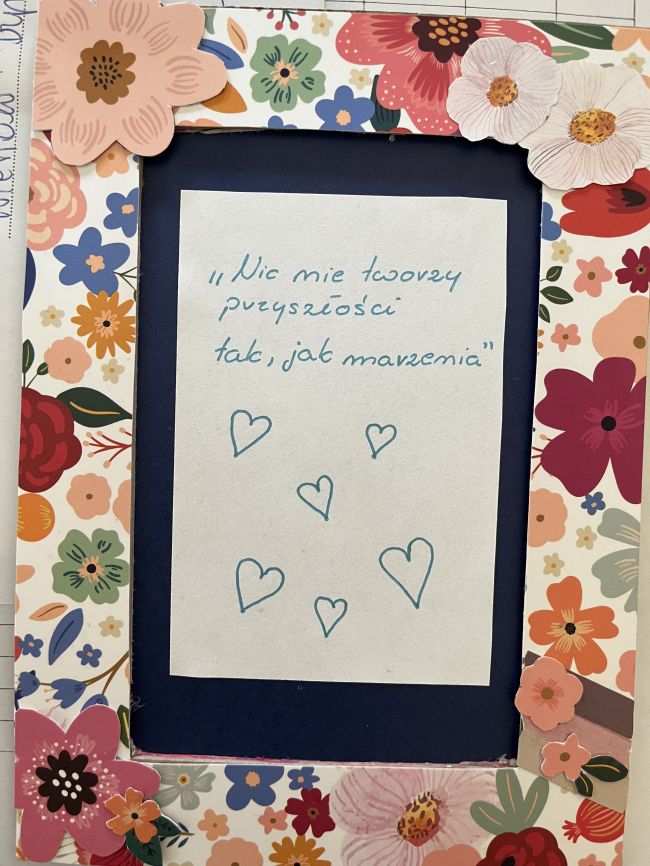 „Nic nie tworzy
przyszłości
tak, jak marzenia"